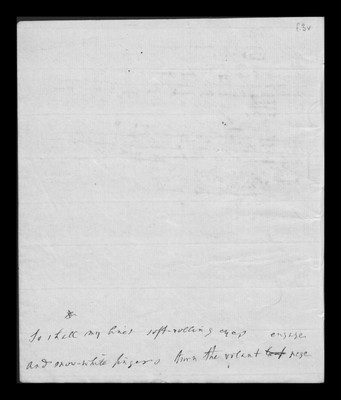 f.3v
So shall my lines soft-rolling eyes engage
And snow-white fingers turn the volant page